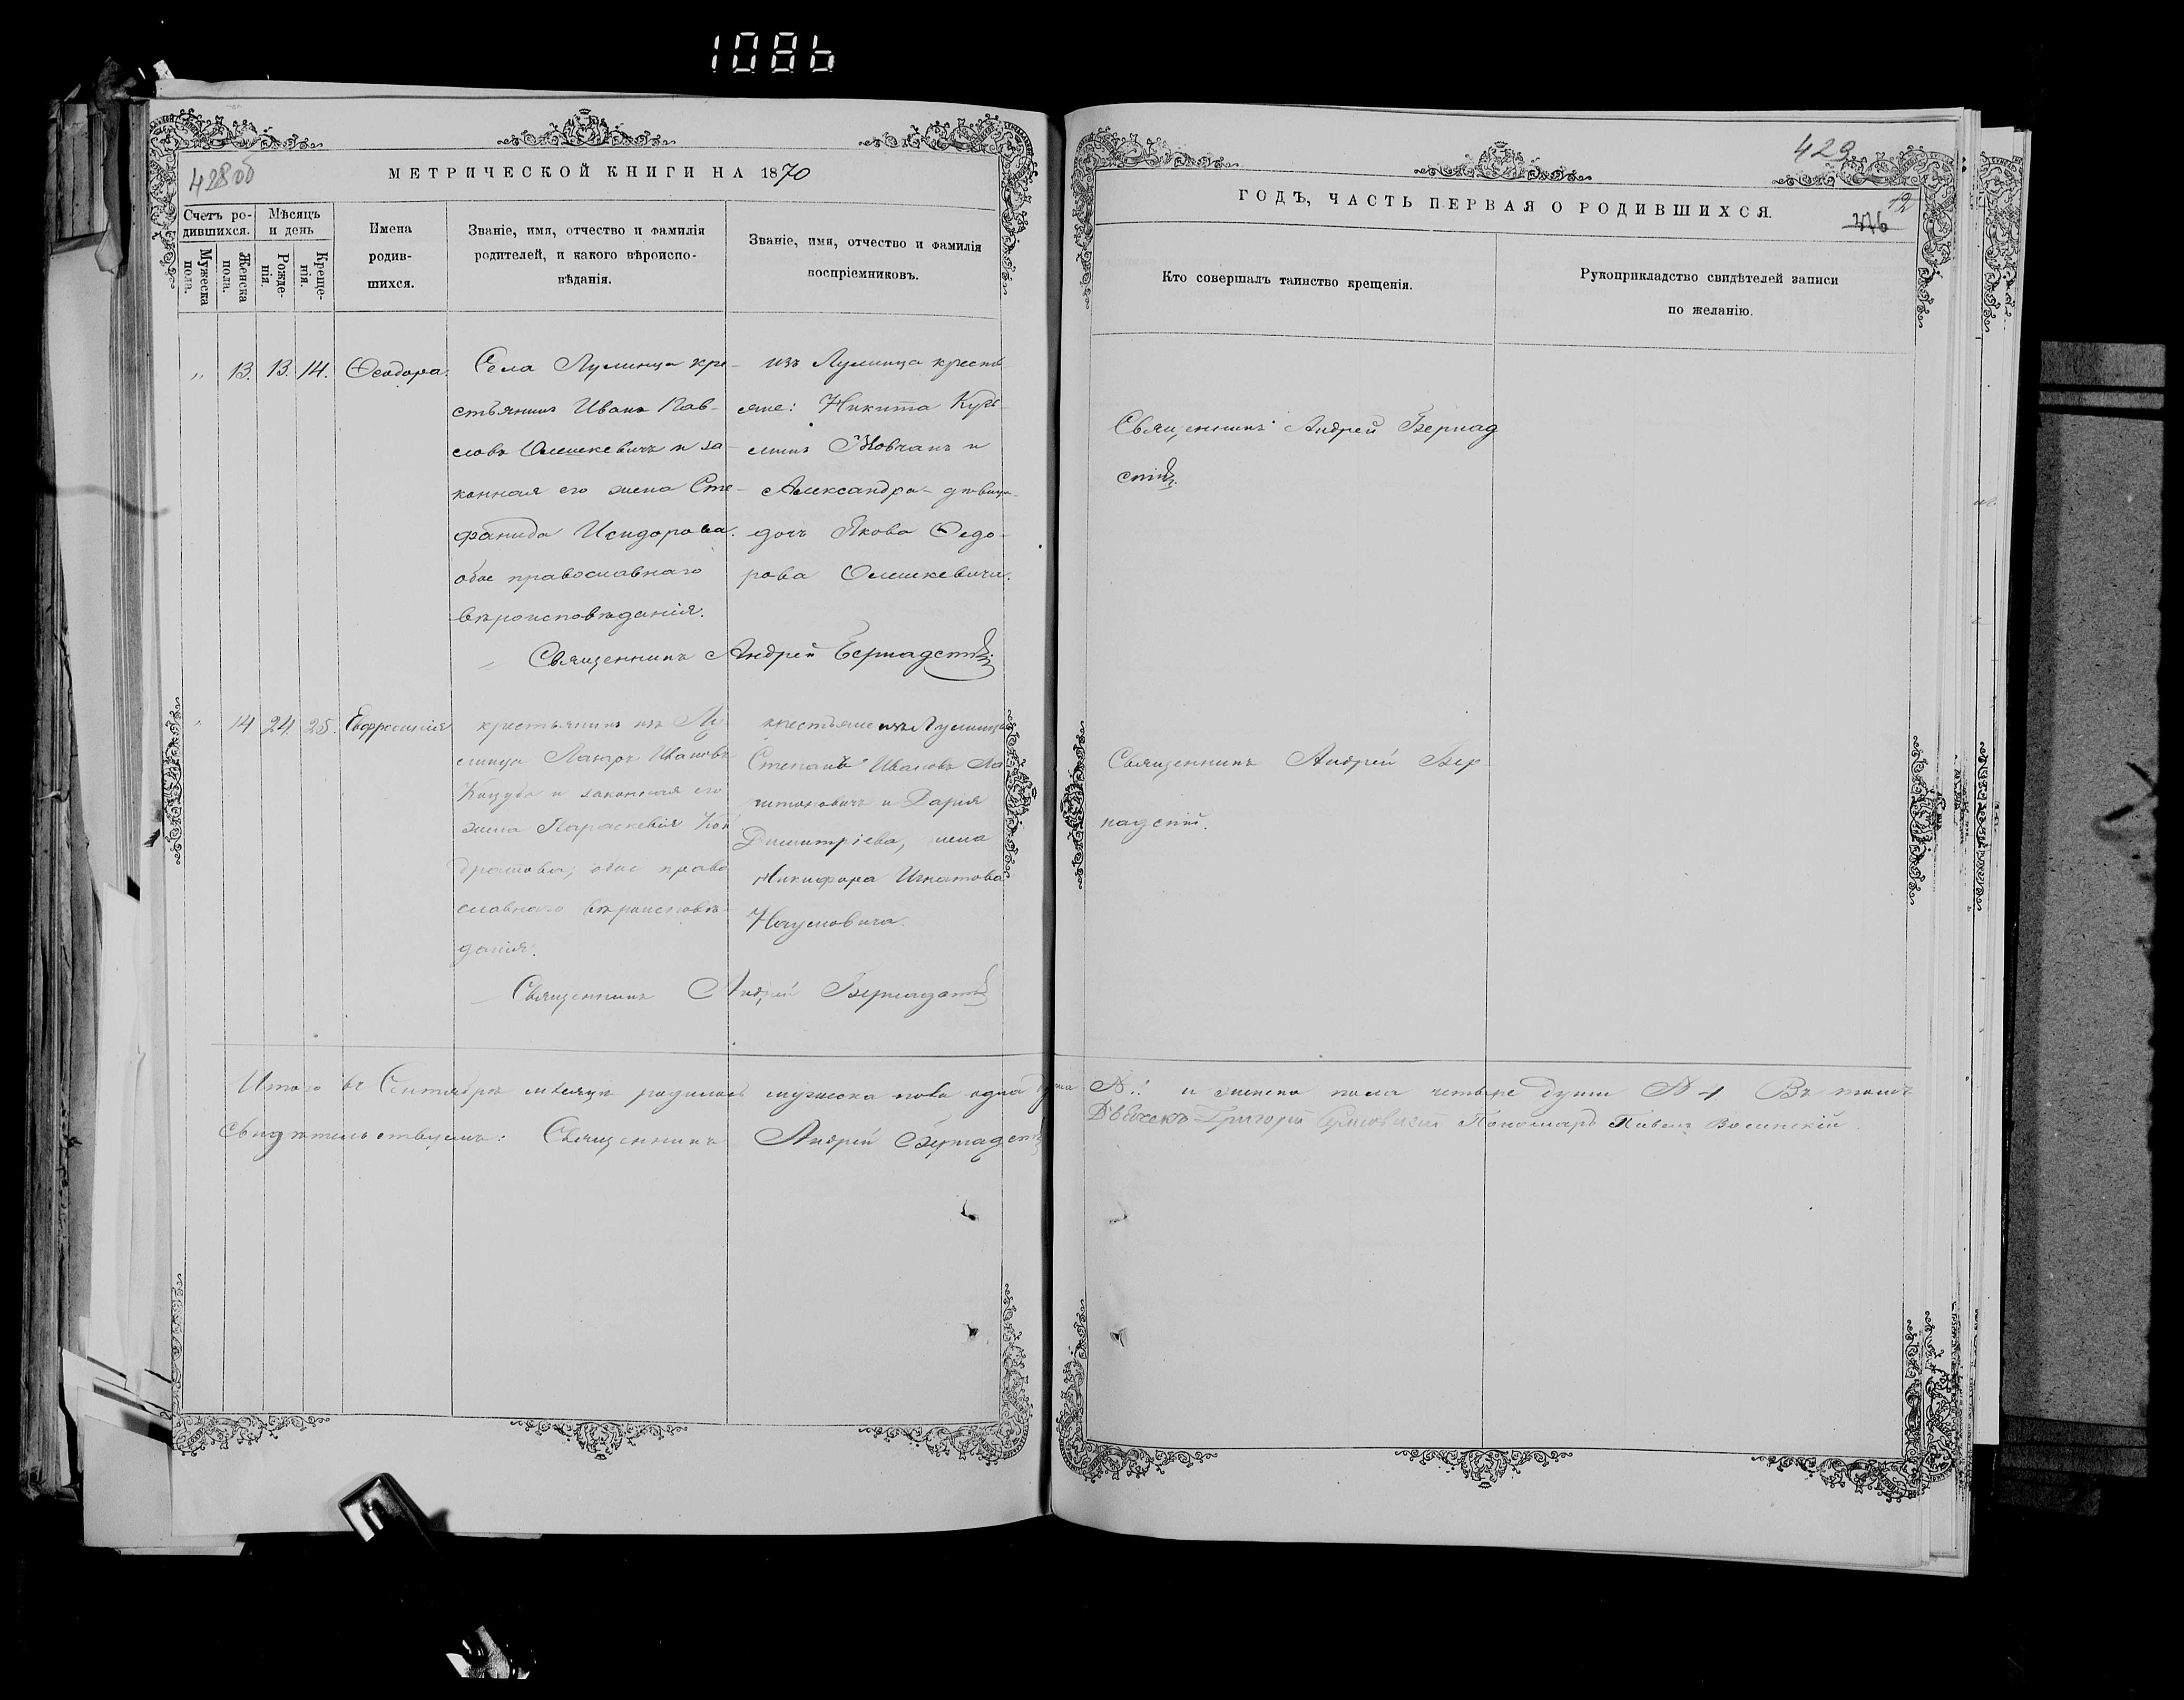 1086
428об
МЕТРИЧЕСКОЙ КНИГИ НА 1870
Счетъ ро-
дившихся.
Мѣсяцъ
и день
Мужеска
пола.
Женска
пола.
Рожде-
нія.
Креще-
нія.
Имена
родив-
шихся.
Званіе, имя, отчество и фамилія
родителей, и какого вѣроиспо-
вѣданія.
Званіе, имя, отчество и фамилія
воспріемниковъ.
„ 13. 13. 14. Ѳеодора.
Села Лулинца кре-
стьянинъ Иванъ Пав-
ловъ Олешкевичъ и за-
конная его жена Сте-
фанида Исидорова.
обое православнаго
вѣроисповѣданія.
изъ Лулинца кресть
яне: Никита
Мовчанъ и
Александра - дѣвица
дочь Якова Ѳедо-
рова Олешкевича.
Священникъ Андрей Бернадскій
„ 14 24. 25. Евфросинія
крестьянинъ изъ Лу
линца Лавръ Ивановъ
Коцуба и законная его
жена Параскевія Кон
дратова; обое право
славнаго вѣроисповѣ-
данія.
крестьяне изъ Лулинца
Степанъ Ивановъ
и Дарія
Димитріева, жена
Никифора Игнатова
Наумовича.
Священникъ Андрей Бернадскій
429
12
376
ГОДЪ, ЧАСТЬ ПЕРВАЯ О РОДИВШИХСЯ.
Кто совершалъ таинство крещенія.
Рукоприкладство свидѣтелей записи
по желанію.
Священникъ Андрей Бернад
скій.
Священникъ Андрей Бер-
надскій.
Итого въ Сентябрѣ мѣсяцѣ родилось мужеска пола одна душа № 1 и женска пола четыре души № 4 Въ томъ
свидѣтельствуемъ: Священникъ Андрей Бернадскій Дьячекъ Григорій Пономарь Павелъ